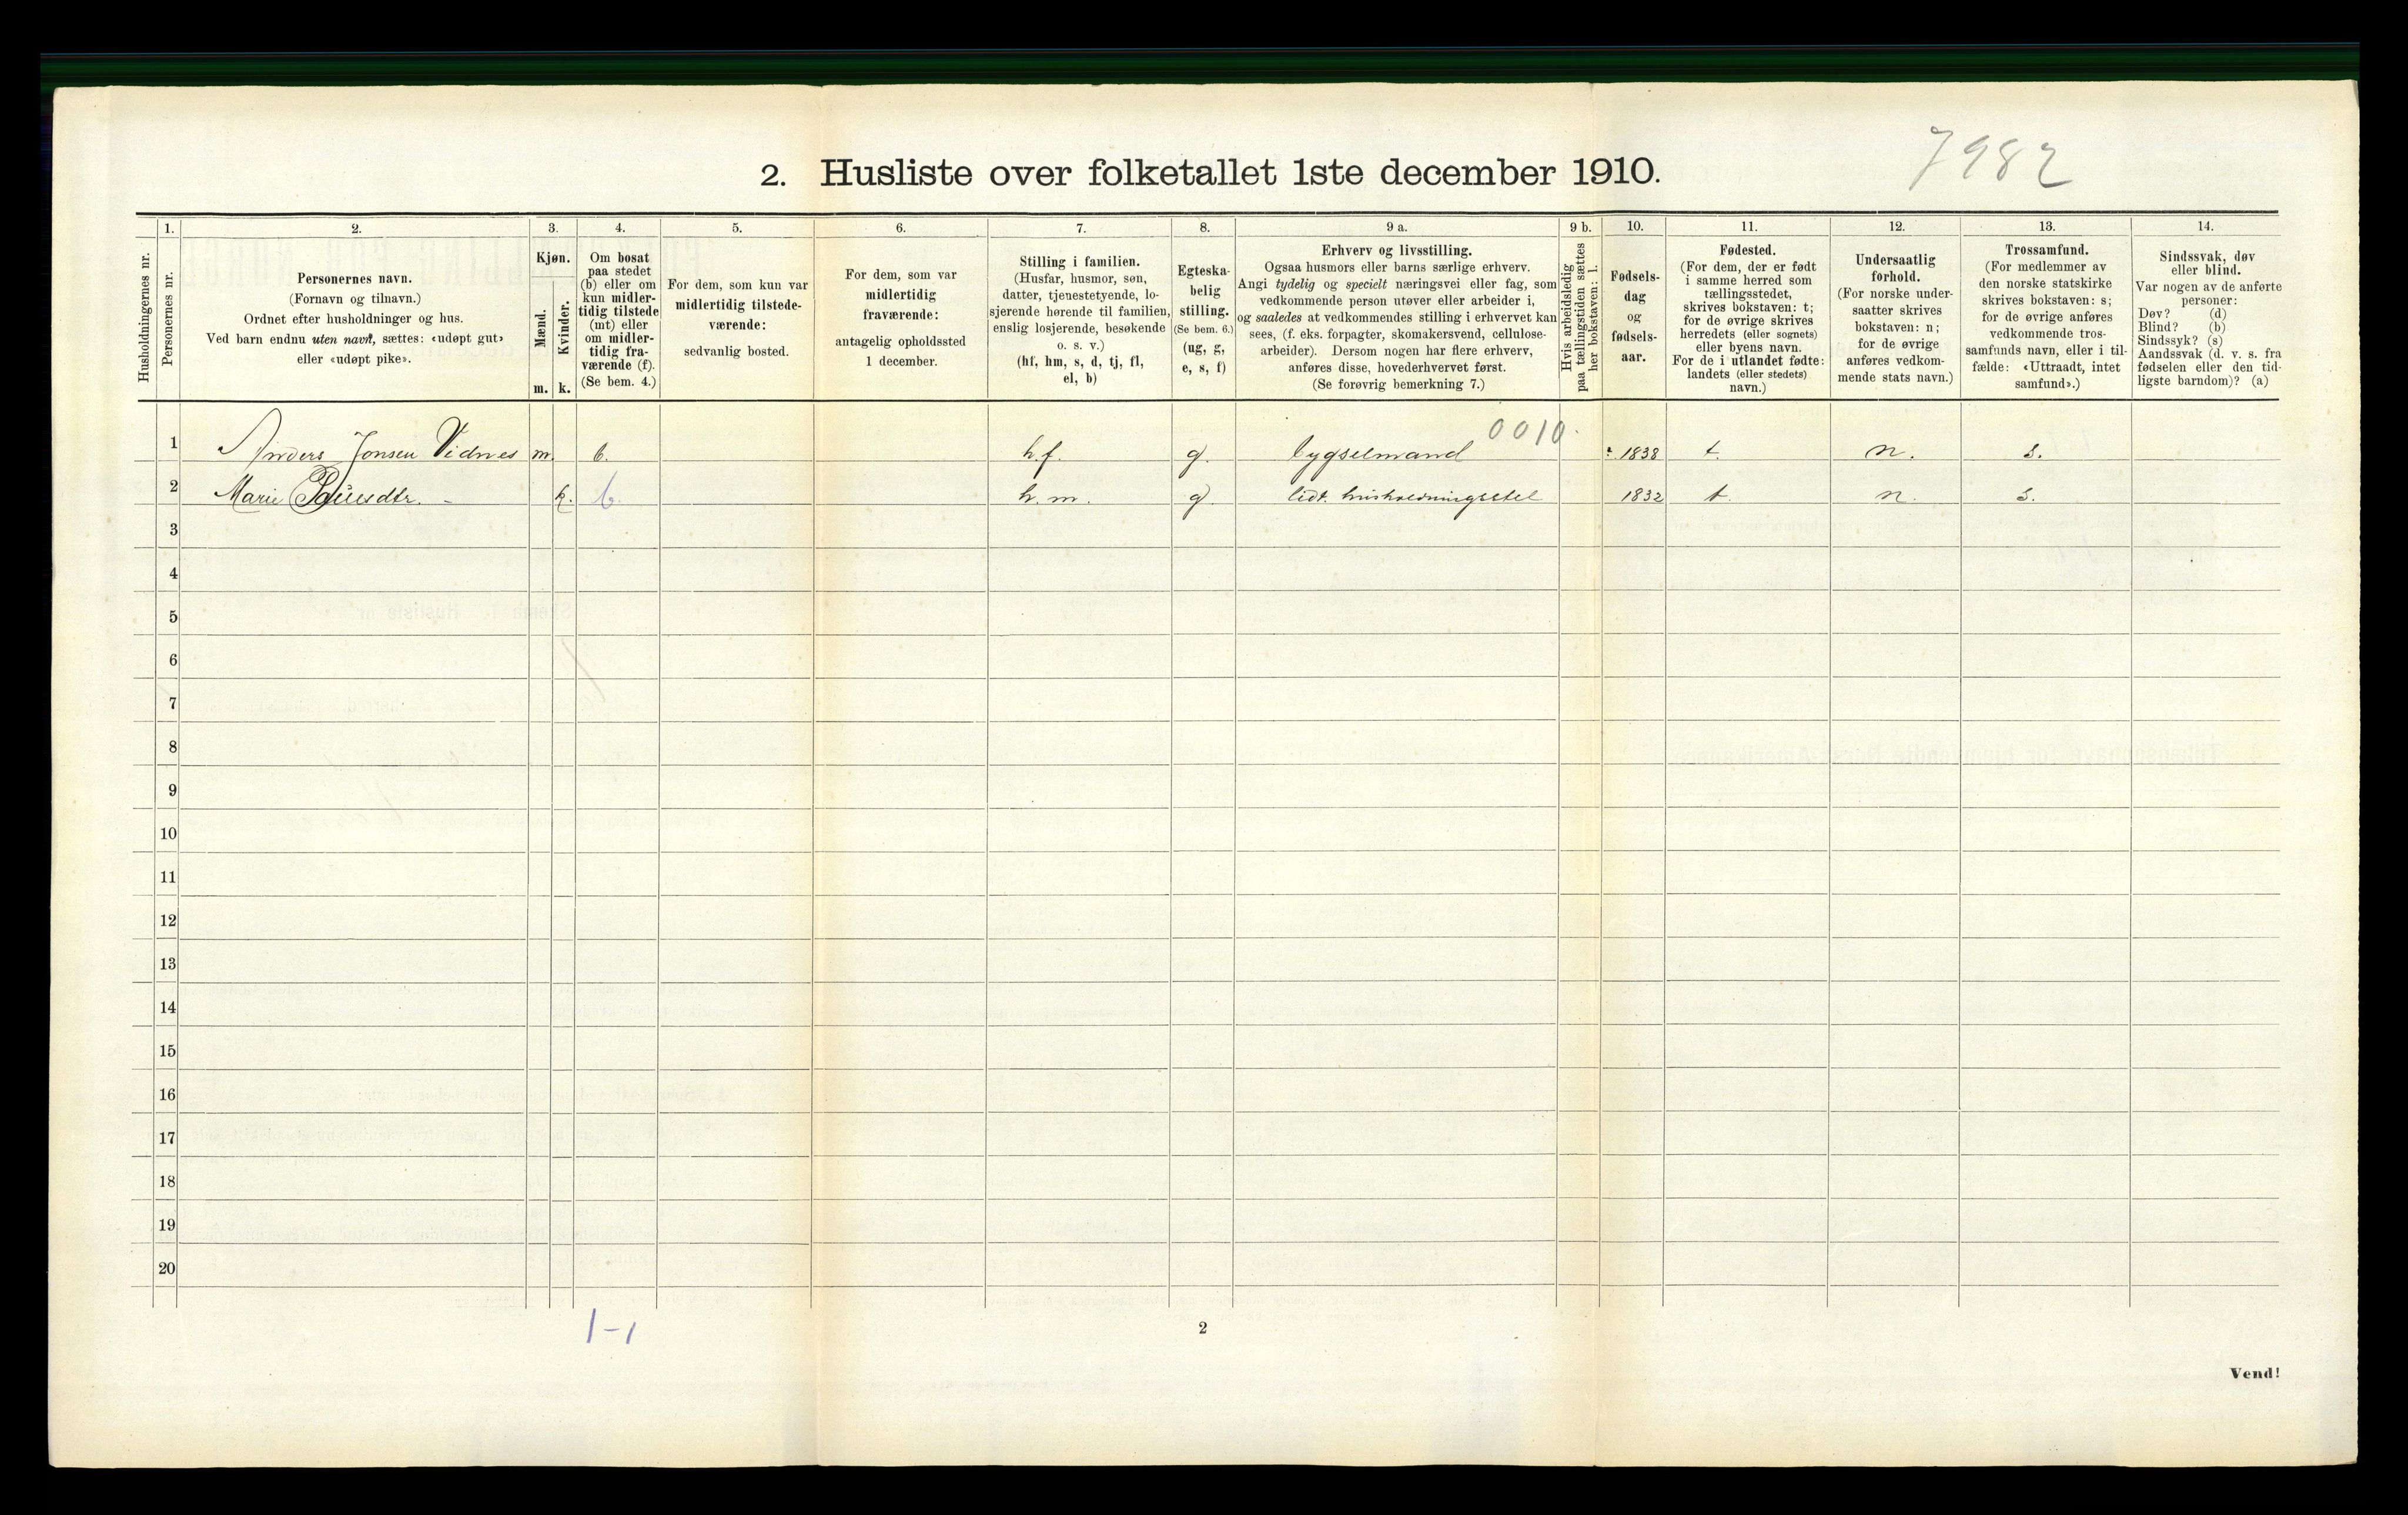 7982
2. Husliste over folketallet 1ste december 1910.
Husholdningernes nr.
1.
Personernes nr.
2.
Personernes navn.
(Fornavn og tilnavn.)
Ordnet efter husholdninger og hus.
Ved barn endnu uten navn, sættes: «udøpt gut»
eller «udøpt pike».
3.
Kjøn.
Mænd.
m.
Kvinder.
k.
4.
Om bosat
paa stedet
(b) eller om
kun midler-
tidig tilstede
(mt) eller
om midler-
tidig fra-
værende (f).
(Se bem. 4.)
5.
For dem, som kun var
midlertidig tilstede-
værende:
sedvanlig bosted.
6.
For dem, som var
midlertidig
fraværende:
antagelig opholdssted
1 december.
7.
Stilling i familien.
(Husfar, husmor, søn,
datter, tjenestetyende, lo-
sjerende hørende til familien,
enslig losjerende, besøkende
o. s. v.)
(hf, hm, s, d, tj, fl,
el, b)
8.
Egteska-
belig
stilling.
(Se bem. 6.)
(ug, g,
e, s, f)
9 a.
Erhverv og livsstilling.
Ogsaa husmors eller barns særlige erhverv.
Angi tydelig og specielt næringsvei eller fag, som
vedkommende person utøver eller arbeider i,
og saaledes at vedkommendes stilling i erhvervet kan
sees, (f. eks. forpagter, skomakersvend, cellulose-
arbeider). Dersom nogen har flere erhverv,
anføres disse, hovederhvervet først.
(Se forøvrig bemerkning 7.)
9 b.
Hvis arbeidsledig
paa tællingstiden sættes
her bokstaven: l.
10.
Fødsels-
dag
og
fødsels-
aar.
11.
Fødested.
(For dem, der er født
i samme herred som
tællingsstedet,
skrives bokstaven: t;
for de øvrige skrives
herredets (eller sognets)
eller byens navn.
For de i utlandet fødte:
landets (eller stedets)
navn.)
12.
Undersaatlig
forhold.
(For norske under-
saatter skrives
bokstaven: n;
for de øvrige
anføres vedkom-
mende stats navn.)
13.
Trossamfund.
(For medlemmer av
den norske statskirke
skrives bokstaven: s;
for de øvrige anføres
vedkommende tros-
samfunds navn, eller i til-
fælde: «Uttraadt, intet
samfund».)
14.
Sindssvak, døv
eller blind.
Var nogen av de anførte
personer:
Døv? (d)
Blind? (b)
Sindssyk? (s)
Aandssvak (d. v. s. fra
fødselen eller den tid-
ligste barndom)? (a)
0010
1 Anders Jonsen Vidnes m. b. h.f. g. bygselmand 1838 t. n. s.
2 Marie - k. b. h.m. g. lidt husholdningsstel 1832 t. n. s.
3
4
5
6
7
8
9
10
11
12
13
14
15
16
17
18
19
20
1-1
2
Vend!